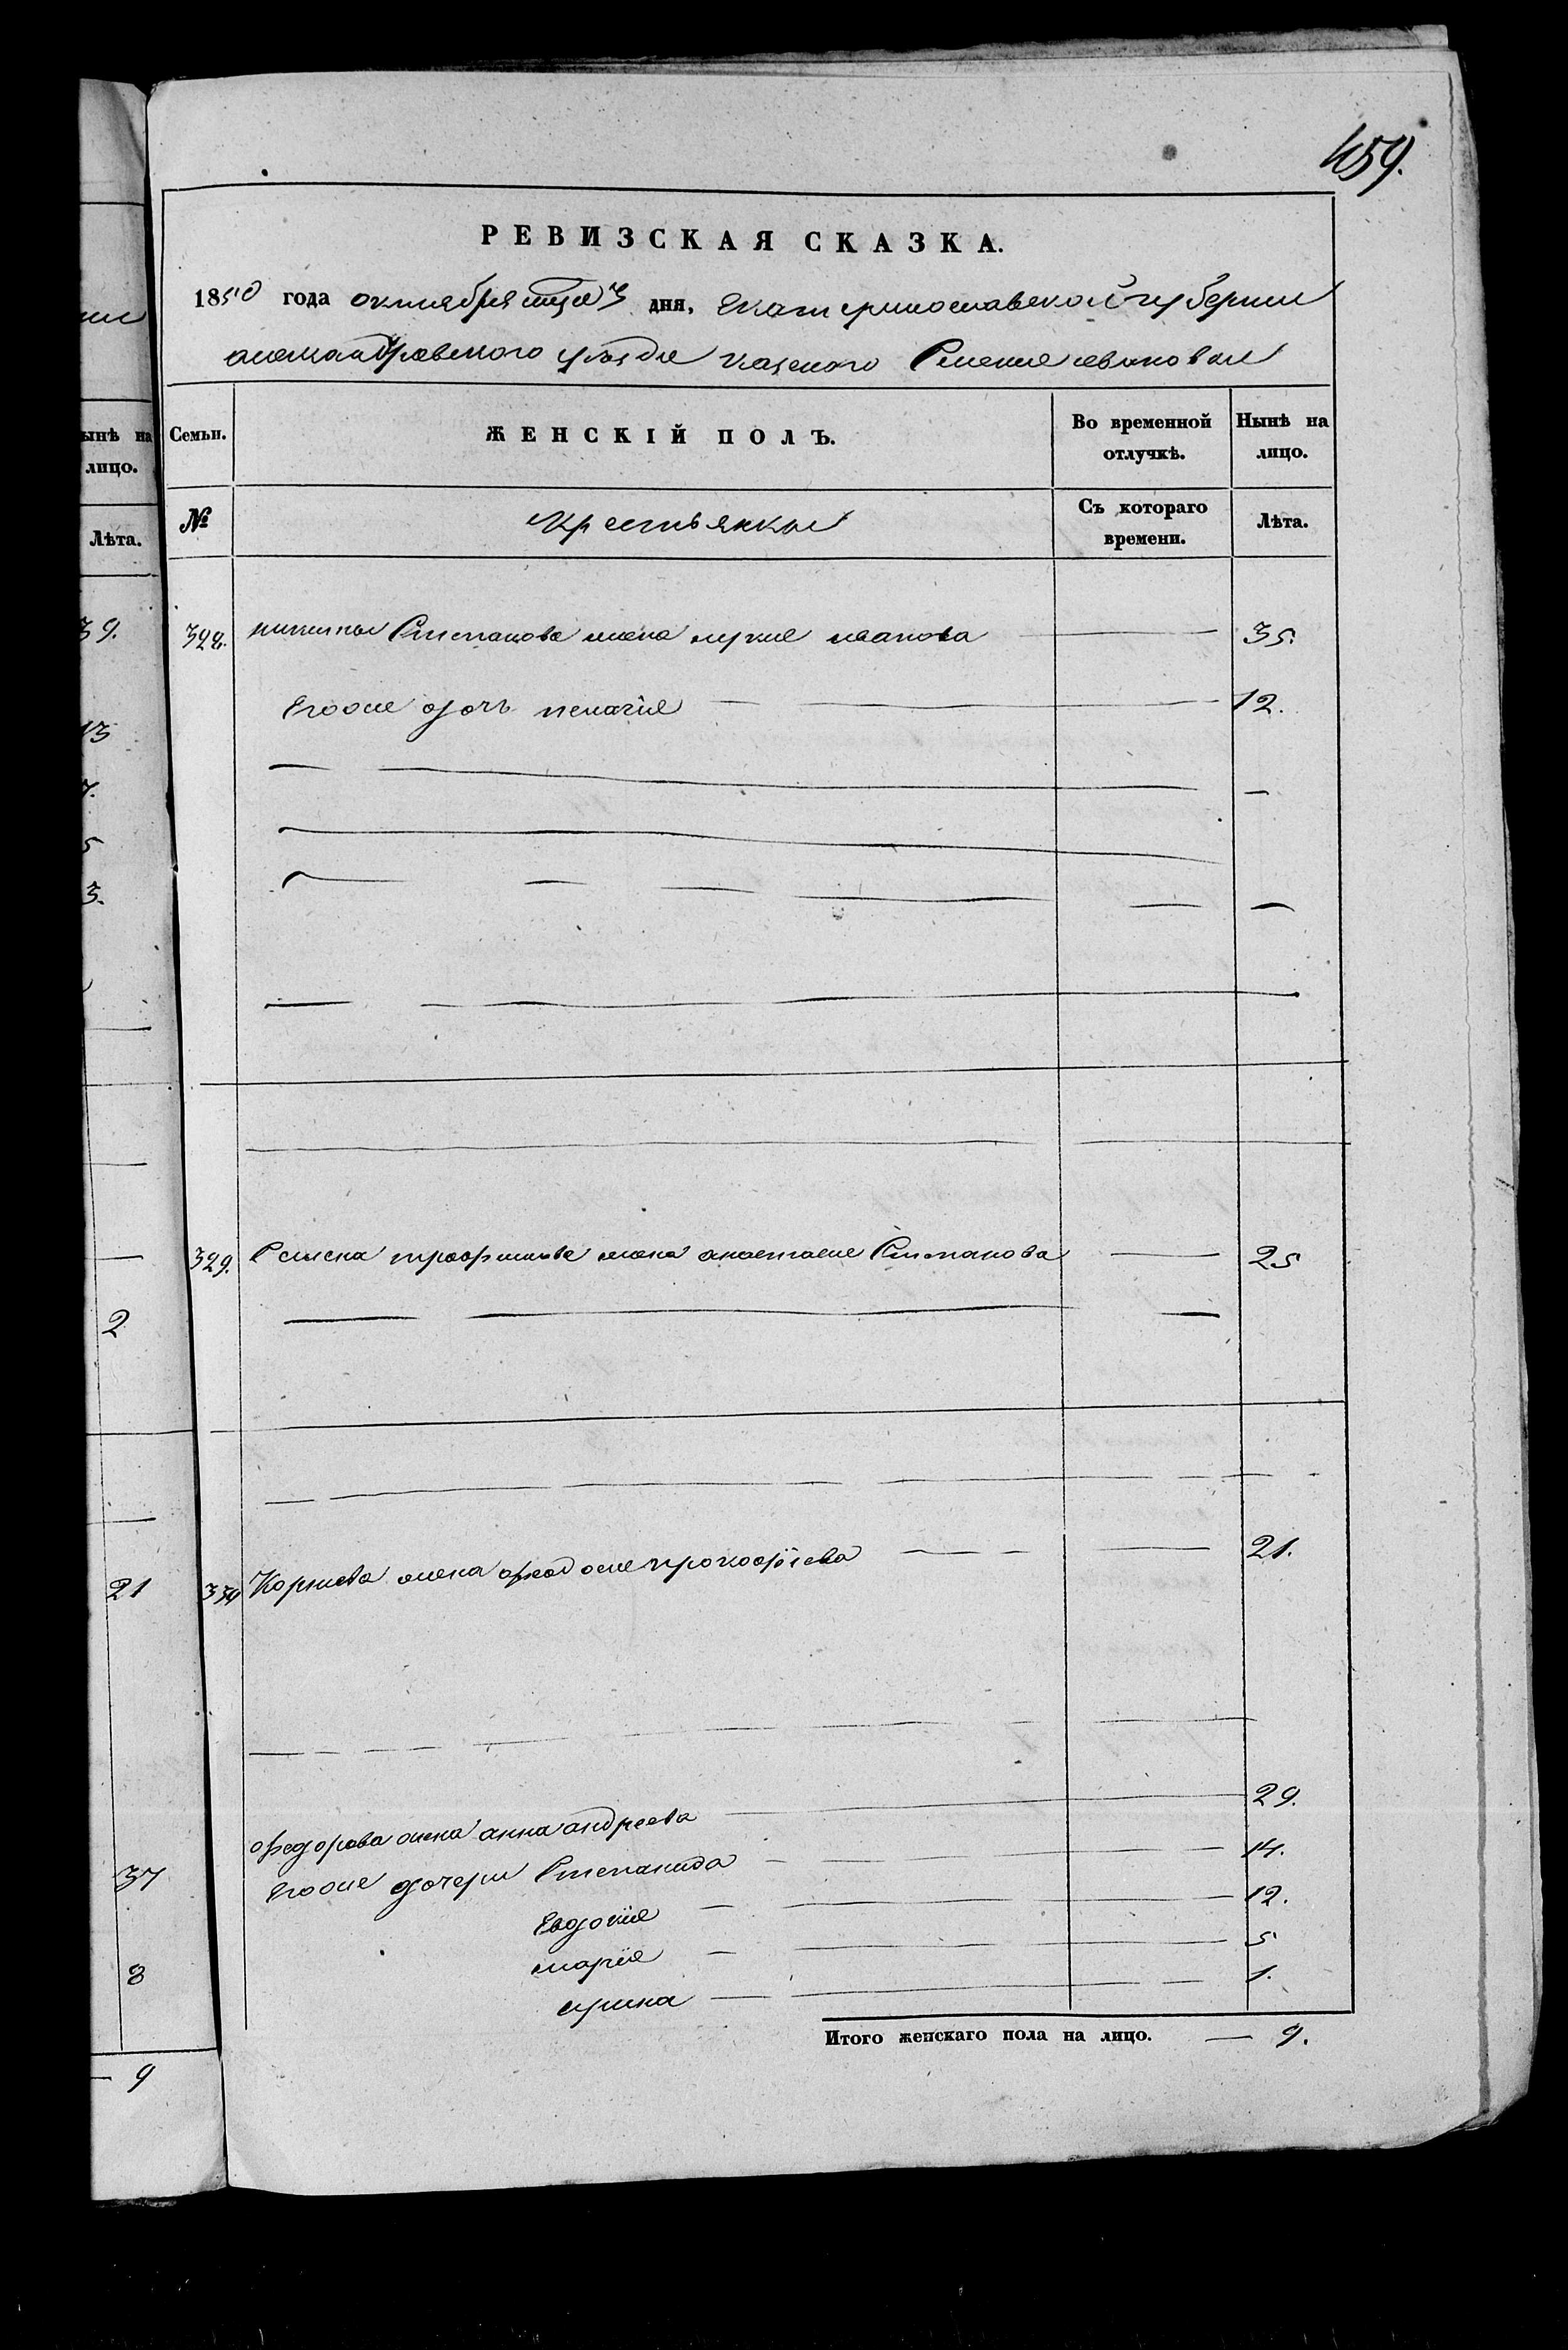 459.
РЕВИЗСКАЯ СКАЗКА.
1850 года октября дня, Екатеринославской губернии
александровского уезда казенного Селения
Семьи. ЖЕНСКІЙ ПОЛЪ. Во временной отлучкѣ. Нынѣ на лицо.
№ Крестьянки Съ котораго времени. Лѣта.
328. никиты Степанова жена иванова — 35.
Его дочь пелагия — 12.
329. трофимова жена анастасия Степанова — 25
330 Корнева жена феодосия прокофiева — 21.
федорова жена анна андреева — 29.
дочери Степанида — 14.
Евдокия — 12.
мария — 5
ирина — 1.
Итого женскаго пола на лицо. — 9.
ынѣ на
лицо.
Лѣта.
39.
13
7.
5
3.
2
21
37
8
— 9